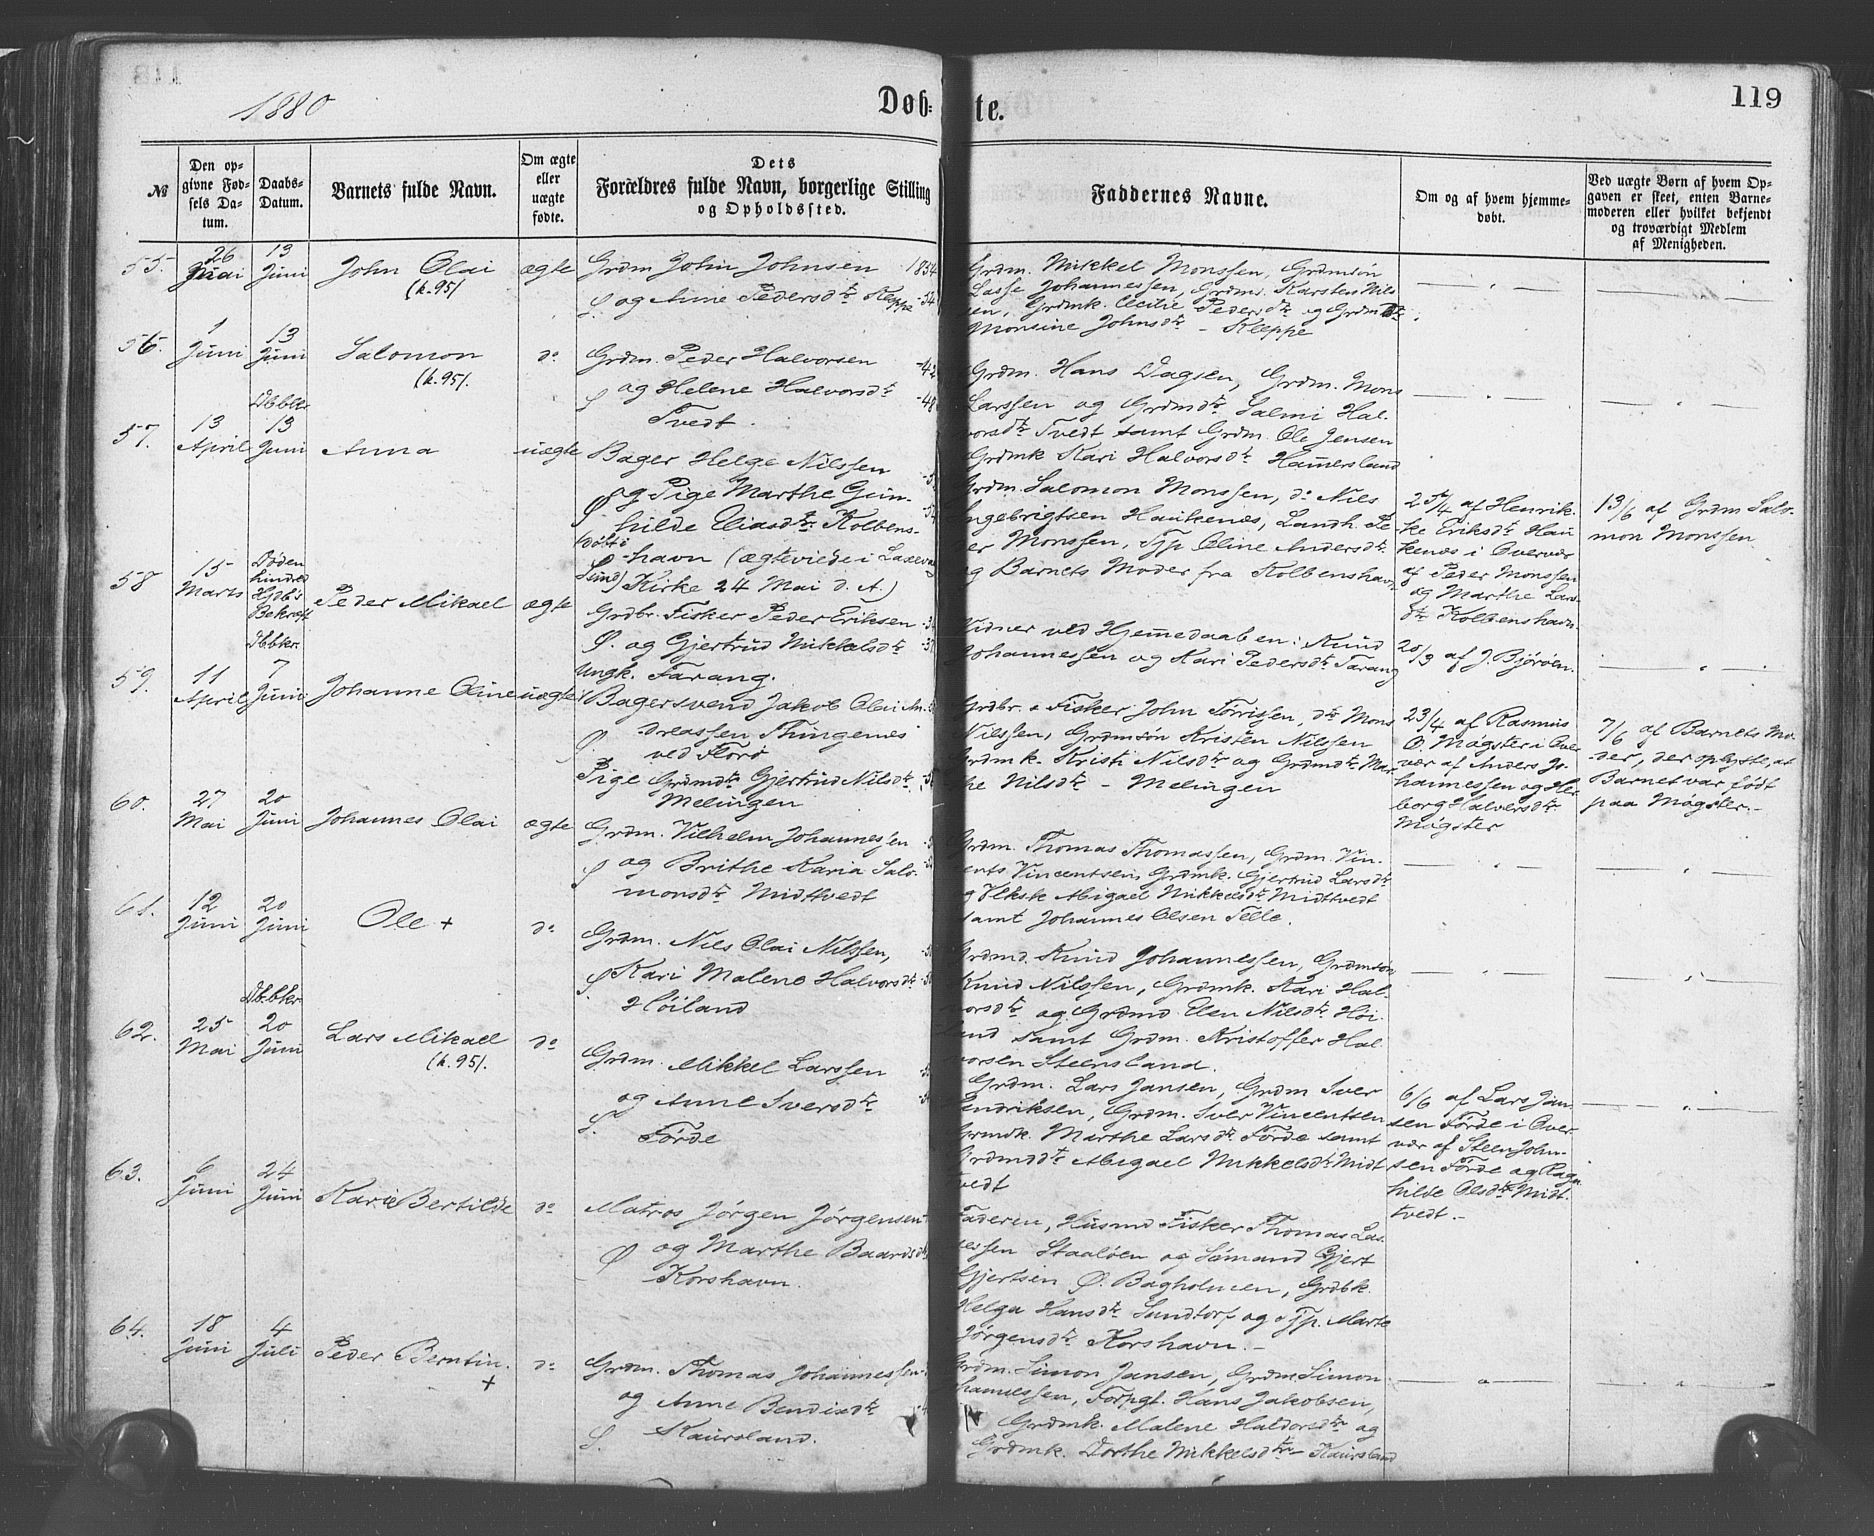 1880
Døb-
te.
119
№
Den opgivne Fødsels Datum.
Daabs-Datum.
Barnets fulde Navn.
Om ægte eller uægte fødte.
Dets Forældres fulde Navn, borgerlige Stilling og Opholdssted.
Faddernes Navne.
Om og af hvem hjemmedøbt.
Ved uægte Børn af hvem Opgaven er skeet, enten Barnemoderen eller hvilket bekjendt og troværdigt Medlem af Menigheden.
55.
26 Mai
13 Juni
John Olai
(k. 95).
ægte
Grdm John Johnsen 1854
S. og Anne Pedersdtr Kleppe -54
Grdm. Mikkel Monssen, Grdmsøn
Lasse Johannessen, Grdms. Karsten Nils
sen, Grdmk. Cecilie Pedersdtr og Grdmdtr
Monsine Johnsdtr - Kleppe
56.
1 Juni
13 Juni
Salomon
(k. 95).
do
Grdm. Peder Halvorsen -42
S. og Helene Halvorsdtr -48
Tvedt.
Grdm. Hans Dagsen, Grdm. Mons
Larssen og Grdmdtr Salmi Hal-
vorsdtr Tvedt samt Grdm. Ole Jensen
Grdmk Kari Halvorsdtr Hamersland
57.
13 April
Dbbkr.
13 Juni
Anna
uægte
Bager Helge Nilssen
Ø og Pige Marthe Gun- -54
hilde Eliasdtr Kolbens-
havn (ægteviede i Laxevaag
Kirke 24 Mai d. A)
Grdm. Salomon Monssen, do Nils
Ingebrigtsen Haukenæs, Landh. Pe-
der Monssen, Tjp. Oline Andersdtr
og Barnets Moder fra Kolbenshavn
25/4 af Henrik-
ke Eriksdtr Hau
kenæs i Overvær
af Peder Monssen
og Marthe Lars-
dtr Kolbenshavn.
13/6 af Grdm Salo-
mon Monssen
58
15 Marts
Døden
hindred
Hjdb's
Bekræft
Peder Mikael
ægte
Grdbr. Fisker Peder Eriksen
Ø. og Gjertrud Mikkelsdtr
Tarang.
Vidner ved Hjemmedaaben: Knud
Johannessen og Kari Pedersdtr Tarang
20/3 af J. Bjørøen.
59.
11 April
Dbbkr.
7 Juni
Johanne Oline
uægte
Ungk.
Bagersvend Jakob Olai An-
dreassen Thingenæs
Ø. ved Florø
Pige Grdmdtr Gjertrud Nilsdtr
Melingen
Grdbr. & Fisker John Tørrissen, do Mons
Nilssen, Grdmsøn Kristen Nilssen
Grdmk. Kristi Nilsdtr og Grdmdtr Mar-
the Nilsdtr - Melingen
23/4 af Rasmus
O. Møgster i Over-
vær af Anders Jo-
hannessen og Her-
borg Halversdtr
Møgster
7/6 af Barnets Mo-
der, der oplyste, at
Barnet var født
paa Møgster.
60.
27 Mai
20 Juni
Johannes Olai
ægte
Grdm. Vilhelm Johannessen
S. og Brithe Karia Salo-
monsdtr Midttvedt
Grdm. Thomas Thomassen, Grdm. Vin-
cents Vincentsen, Grdmk. Gjertrud Larsdtr
og Abigael Mikkelsdtr Midttvedt
samt Johannes Olsen Telle.
61.
12 Juni
20 Juni
Ole +
do
Grdm. Nils Olai Nilssen,
S. Kari Malene Halvorsdtr
Høiland
Grdmd. Knud Johannessen, Grdmsøn
Knud Nilssen, Grdmk. Kari Hal-
vorsdtr og Grdmd Elen Nilsdtr Høi-
land samt Grdm. Kristoffer Hal-
vorsen Steensland.
62.
25 Mai
Dbbkr.
20 Juni
Lars Mikael
(k. 95).
do
Grdm. Mikkel Larssen
og Anne Iversdtr
S. Førde
Grdm. Lars Jansen, Grdm Iver
Hendriksen, Grdm. Iver Vincentsen
Grmdk. Marthe Larsdtr Førde samt
Grdmddtr Abigael Mikkelsdtr Midt
tvedt
6/6 af Lars Jan-
sen Førde i Over-
vær af Steen John-
sen Førde og Rag-
hilde Olsdtr Midt-
tvedt.
63.
6 Juni
24 Juni
Karie Bertilde
do
Matros Jørgen Jørgensen
Ø og Marthe Baardsdtr
Korshavn.
Faderen, Husmd Fisker Thomas Las-
sessen Staaløen og Sømand Gjert
Gjertsen Ø. Bagholmen, Grdbk.
Helga Hansdtr Sundtorp og Tjp. Marte
Jørgensdtr Korshavn.
64.
18 Juni
4 Juli
Peder Berntin.
+
do
Grdm. Thomas Johannessen
og Anne Bendixdtr
S. Kaursland.
Grdm. Simon Jansen, Grdm Simon
Johannessen, Forpgt. Hans Jakobsen,
Grdmk. Malene Haldorsdtr og
Grdmk. Dorthe Mikkelsdtr - Kaursland